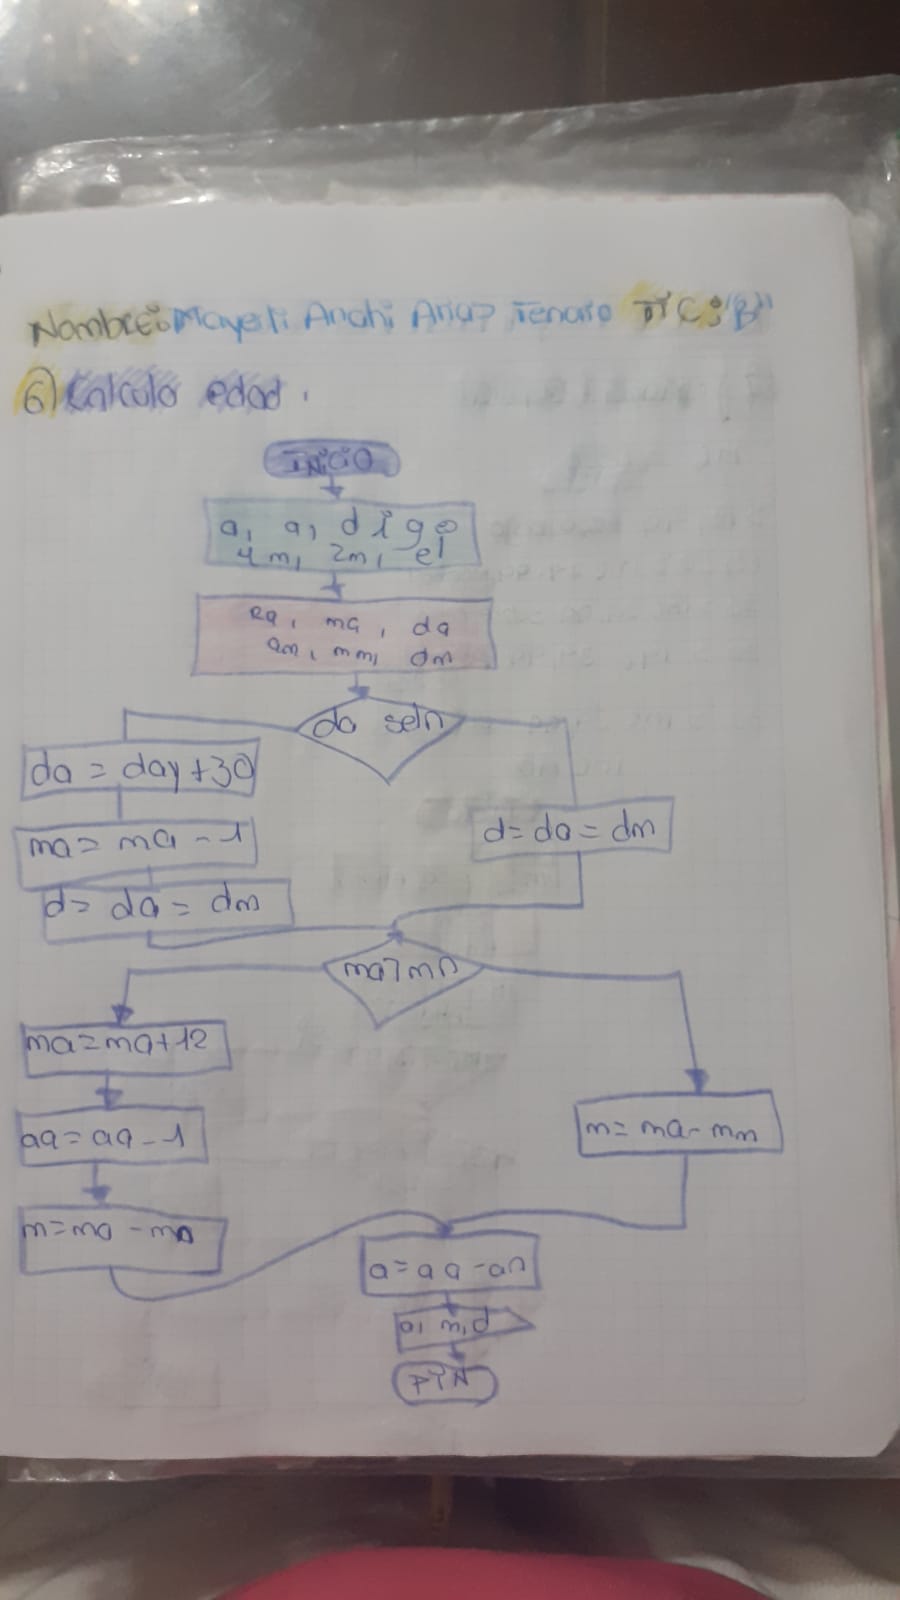 Nombre: Mayeli Anahi Arias Tenario "B"
6) Calculo edad.
INICIO
a, a, d i g e
4m, 2m, el
ea, ma, da
am, mm, dm
da seln
da = day+30
ma = ma - 1
d = da = dm
d = da = dm
ma7mn
ma=ma+12
aa=aa-1
m=ma-mn
m=ma-mm
a=aa-an
a, m, d
FIN